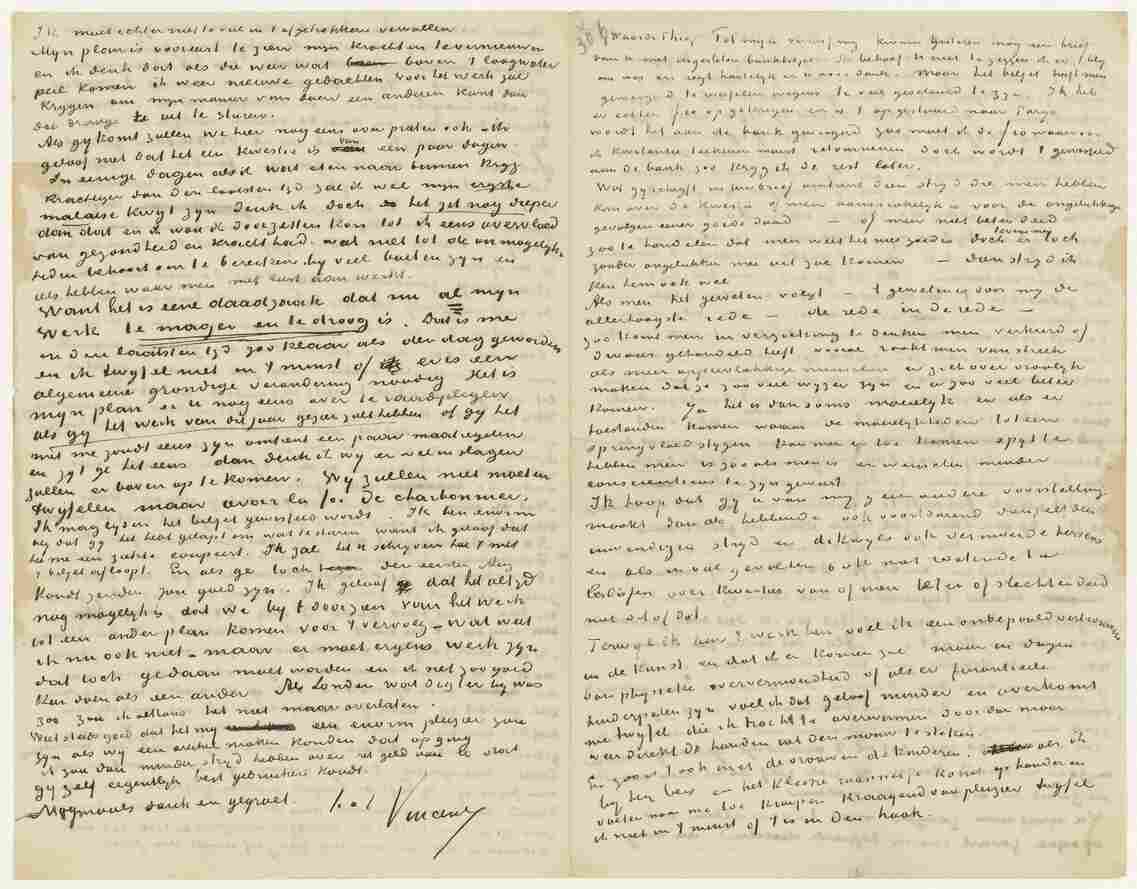 Ik moet echter niet te veel in 't afgetrokkene vervallen.
Mijn plan is vooreerst te zien mijn krachten te vernieuwen
en ik denk dat als die weer wat boven 't laagwater
peil komen ik weer nieuwe gedachten voor het werk zal
krijgen om mijn manier van doen een anderen kant dan
dat droge te uit te sturen.
Als gij komt zullen we hier nog eens over praten ook – ik
geloof niet dat het een kwestie is van een paar dagen.
In eenige dagen als ik wat eten naar binnen krijg
krachtiger dan den laatsten tijd zal ik wel mijn ergste
malaise kwijt zijn denk ik doch het zit nog dieper
dan dat en ik wou ik doorzetten kon tot ik eens overvloed
van gezondheid en kracht had. wat niet tot de onmogelijk-
heden behoort om te bereiken bij veel buiten zijn en
iets hebben waar men met lust aan werkt.
Want het is eene daadzaak dat nu al mijn
werk te mager en te droog is. Dat is me
in den laatsten tijd zoo klaar als den dag geworden
en ik twijfel niet in 't minst of er is een
algemeene grondige verandering noodig Het is
mijn plan er u nog eens over te raadplegen
als gij het werk van dit jaar gezien zult hebben of gij het
met me zoudt eens zijn omtrent een paar maatregelen
en zijt ge het eens dan denk ik wij er wel in slagen
zullen er boven op te komen. Wij zullen niet moeten
twijfelen maar avoir la foi de charbonnier.
Ik mag lijden het biljet gewisseld wordt. Ik ben enorm
blij dat gij het hebt gelapt om wat te sturen want ik geloof dat
het me een ziekte coupeert. Ik zal het u schrijven hoe 't met
't biljet afloopt. En als ge toch den eersten Mei
kondt zenden zou goed zijn. Ik geloof dat het altijd
nog mogelijk is dat we bij t doorzien van het werk
tot een ander plan komen voor 't vervolg – wat weet
ik nu ook niet – maar er moet ergens werk zijn
dat toch gedaan moet worden en ik net zoo goed
kan doen als een ander Als Londen wat digter bij was
zoo zou ik althans het niet maar overlaten.
Weet steeds goed dat het mij een enorm pleizier zou
zijn als wij een artikel maken konden dat op ging
ik zou dan minder strijd hebben over 't geld van U zooals
gij zelf eigentlijk best gebruiken kondt.
Nogmaals dank en gegroet. t.a t Vincent
Waarde Theo Tot mijn verrassing kwam gisteren nog een brief
van U met ingesloten bankbiljet. Ik behoef U niet te zeggen ik er blij
om was en zegt hartelijk er u voor dank. Maar het biljet heeft men
geweigerd te wisselen wegens te veel gescheurd te zijn. Ik heb
er echter f 10 op gekregen en is 't opgestuurd naar Parijs
wordt het aan de bank geweigerd zoo moet ik de f 10 waarvoor
ik kwitantie teekenen moest retourneeren doch wordt 't gewisseld
aan de bank zoo krijg ik de rest later.
Wat gij schrijft in uw brief omtrent dien strijd die men hebben
kan over de kwestie of men aansprakelijk is voor de ongelukkige
gevolgen eener goede daad – of men niet beter deed
zoo te handelen dat men weet het niet goed en doch er toch
zonder ongelukken mee uit zal komen – dien strijd ik
ken hem ook wel
Als men het geweten volgt – 't geweten is voor mij de
allerhoogste rede – de rede in de rede –
zoo komt men in verzoeking te denken men verkeerd of
dwaas gehandeld heeft vooral raakt men van streek
als meer oppervlakkige menschen er zich over vroolijk
maken dat ze zoo veel wijzer zijn en er zoo veel beter
komen. Ja het is dan soms moeielijk en als er
toestanden komen waarin de moeielijkheden tot een
springvloed stijgen kan men er toe komen spijt te
hebben men is zooals men is en wenschen minder
consciencieus te zijn geweest
Ik hoop dat gij u van mij geen andere voorstelling
maakt dan als hebbende ook voortdurend dienzelfden
inwendigen strijd en dikwijls ook vermoeide hersens
en als in veel gevallen ook niet wetende te
beslissen over kwesties van of men beter of slechter deed
met dit of dat.
Terwijl ik aan 't werk ben voel ik een onbepaald vertrouwen
in de kunst en dat ik er komen zal maar in dagen
van physieke oververmoeidheid of als er finantieele
hinderpalen zijn voel ik dat geloof minder en overkomt
me twijfel die ik tracht te overwinnen door dan maar
weer direkt de handen uit den mouw te steken.
En zoo is 't ook met de vrouw en de kinderen. als ik
bij hen ben en het kleine mannetje komt op handen en
voeten naar me toe kruipen kraaijend van pleizier twijfel
ik niet in 't minst of 't is in den haak.